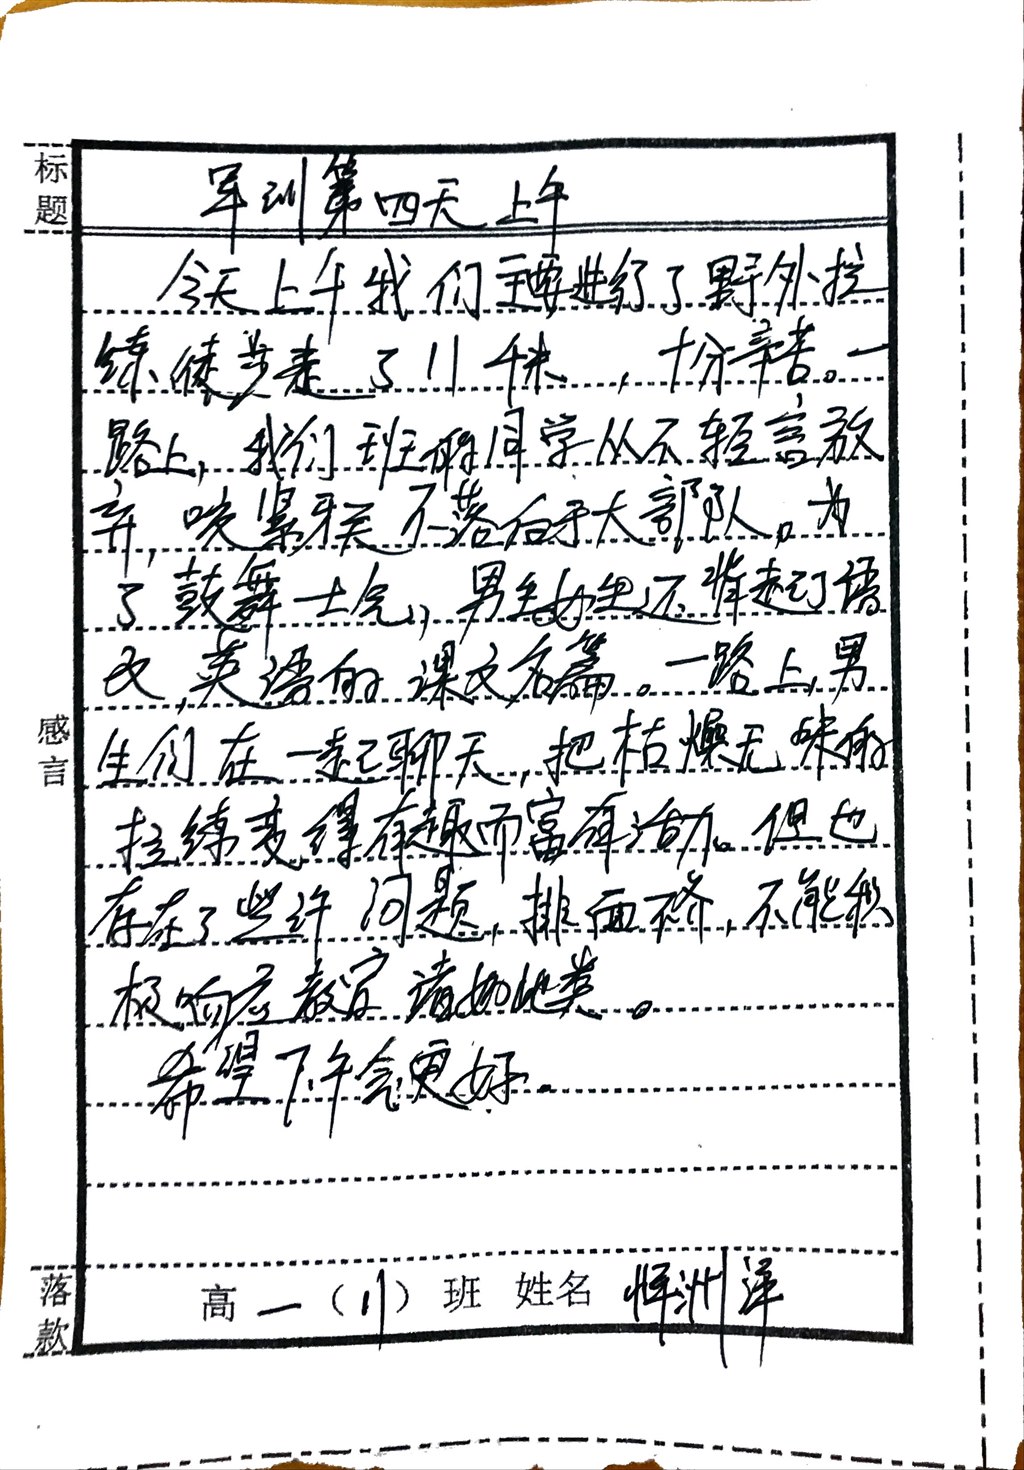 标题
军训第四天上午
今天上午我们主要进行了野外拉
练,徒步走了11千米,十分辛苦。一
路上,我们班的同学从不轻言放
弃,咬紧牙关不落后于大部队。为
了鼓舞士气,男生女生还背起了语
文,英语的课文名篇。一路上,男
生们在一起聊天,把枯燥无味的
拉练变得有趣而富有活力。但也
存在了些许问题,排面不齐,不能积
极响应教官诸如此类。
希望下午会更好.
感言
落款
高一(11)班 姓名 恽洲洋